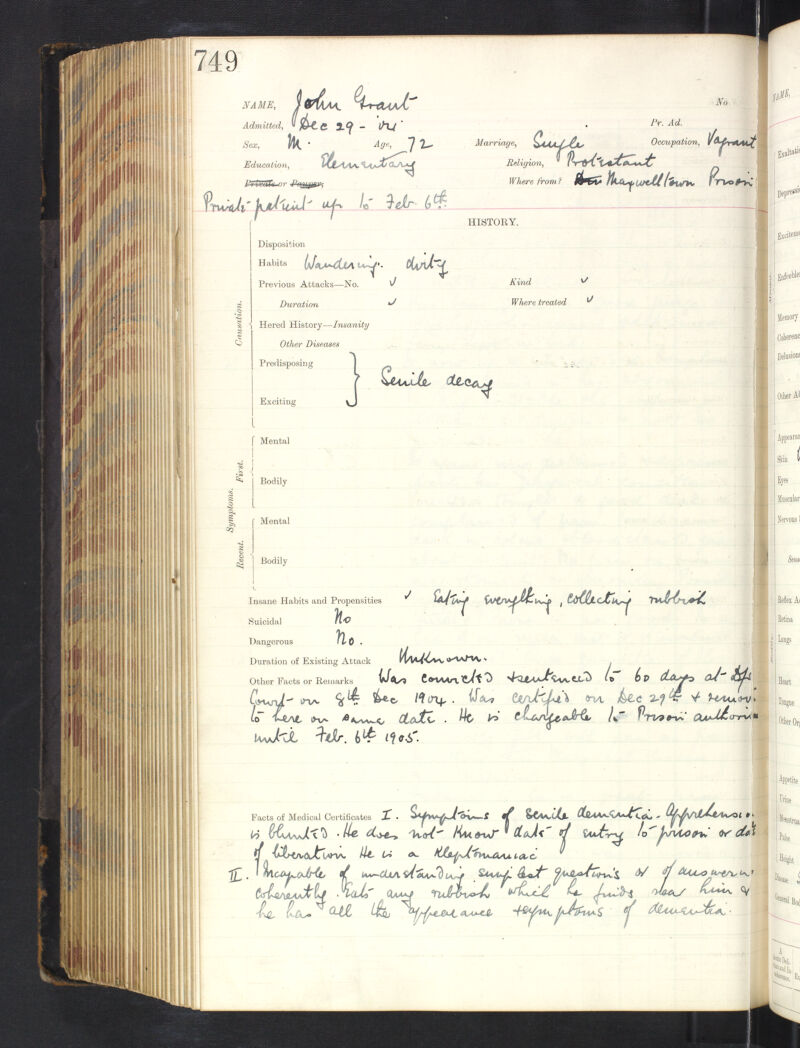 749
NAME, John Grant No
Admitted, Dec 29 - '04 Pr. Ad.
Sex, M. Age, 72 Marriage, Single Occupation, Vagrant
Education, Elementary Religion, Protestant
Private or Pauper, Where from? Maxwelltown Prison
Private patient up to Feb. 6th.
HISTORY.
Causation.
Disposition
Habits Wandering. dirty
Previous Attacks—No. ✓ Kind ✓
Duration ✓ Where treated ✓
Hered History—Insanity
Other Diseases
Predisposing
} Senile decay
Exciting
Symptoms.
First.
Mental
Bodily
Recent.
Mental
Bodily
Insane Habits and Propensities ✓ Eating everything, collecting rubbish
Suicidal No
Dangerous No.
Duration of Existing Attack Unknown.
Other Facts or Remarks Was convicted & sentenced to 60 days at
Court on 8th Dec 1904. Was certified on Dec 29th & remov
to here on same date. He is chargeable to Prison authori
until Feb. 6th 1905.
Facts of Medical Certificates I. Symptoms of senile dementia. Apprehensio
is blunted. He does not know date of entry to prison or dat
of liberation He is a Kleptomaniac
II. Incapable of understanding simplest questions or of answerin
coherently. Eats any rubbish which he finds near him &
he has all the appearance & symptoms of dementia.
NAME,
Exaltati
Depressi
Exciteme
Enfeeble
Memory
Coherenc
Delusions
Other A
Appearan
Skin
Eyes
Muscular
Nervous
Reflex A
Retina
Lungs
Heart
Tongue
Other Or
Appetite
Urine
Menstrua
Pulse
Height,
Disease
General Bod